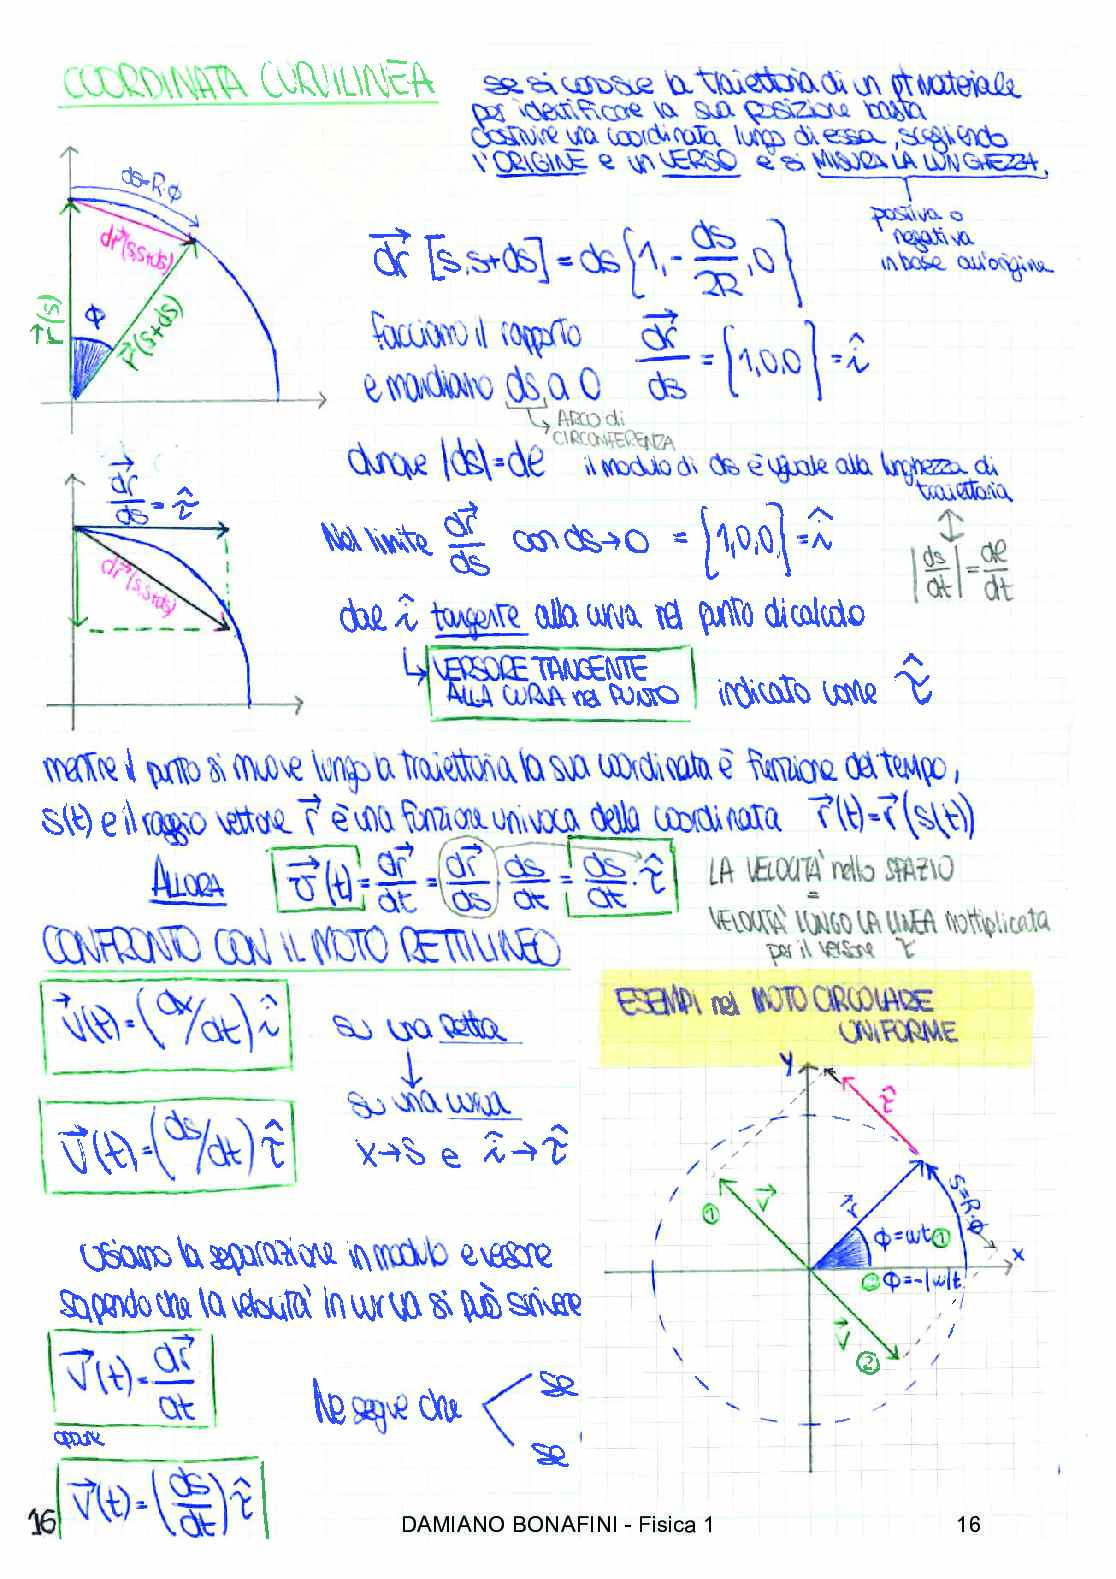 COORDINATA CURVILINEA
se si conosce la traiettoria di un pt materiale
per identificare la sua posizione basta
costruire una coordinata lungo di essa, scegliendo
l'ORIGINE e un VERSO e si MISURA LA LUNGHEZZA.
positiva o
negativa
in base all'origine
ds=R·φ
dr⃗(s,s+ds)
r⃗(s)
φ
r⃗(s+ds)
dr⃗ [s,s+ds] = ds {1, -ds/2R, 0}
facciamo il rapporto
e mandiamo ds a 0
dr⃗/ds = {1,0,0} = î
ARCO di
CIRCONFERENZA
dunque |ds|=dℓ il modulo di ds è uguale alla lunghezza di
traiettoria
dr⃗/ds = τ̂
dr⃗(s,s+ds)
Nel limite dr⃗/ds con ds→0 = {1,0,0} = î
|ds/dt| = dℓ/dt
dove î tangente alla curva nel punto di calcolo
VERSORE TANGENTE
ALLA CURVA nel PUNTO
indicato come τ̂
mentre il punto si muove lungo la traiettoria la sua coordinata è funzione del tempo,
s(t) e il raggio vettore r⃗ è una funzione univoca della coordinata r⃗(t)=r⃗(s(t))
ALLORA v⃗(t) = dr⃗/dt = dr⃗/ds · ds/dt = ds/dt · τ̂
LA VELOCITA' nello SPAZIO
=
VELOCITA' LUNGO LA LINEA moltiplicata
per il versore τ
CONFRONTO CON IL MOTO RETTILINEO
v⃗(t)=(dx/dt) î
su una retta
su una curva
v⃗(t)=(ds/dt) τ̂
x→s e î→τ̂
ESEMPI nel MOTO CIRCOLARE
UNIFORME
y
τ̂
① v⃗
r⃗
s=R·φ
φ=ωt ①
x
② φ=-|ω|t
v⃗
②
Usiamo la separazione in modulo e versore
sapendo che la velocita' in curva si può scrivere
v⃗(t)=dr⃗/dt
oppure
v⃗(t)=(ds/dt) τ̂
Ne segue che
se
se
16
DAMIANO BONAFINI - Fisica 1
16